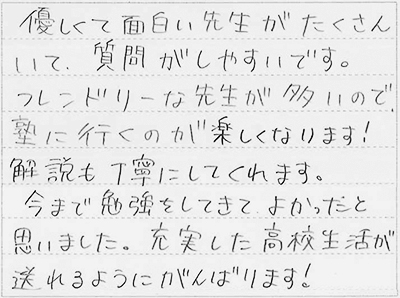 優しくて面白い先生がたくさん
いて、質問がしやすいです。
フレンドリーな先生が多いので、
塾に行くのが楽しくなります!
解説も丁寧にしてくれます。
今まで勉強をしてきて、よかったと
思いました。充実した高校生活が
送れるようにがんばります!